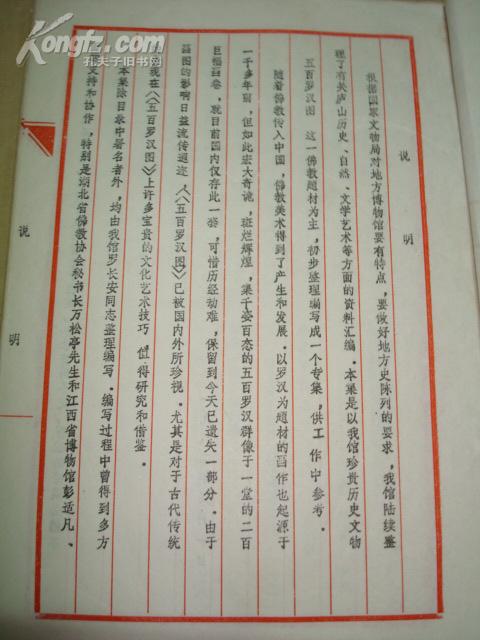 Kongfz.com
孔夫子旧书网
说 明
根据国家文物局对地方博物馆要有特点，要做好地方史陈列的要求，我馆陆续鉴
理了有关庐山历史、自然、文学艺术等方面的资料汇编．本集是以我馆珍贵历史文物
五百罗汉图 这一佛教题材为主，初步整理编写成一个专集，供工作中参考．
随着佛教传入中国，佛教美术得到了产生和发展．以罗汉为题材的画作也起源于
一千多年前，但如此宏大奇诡，斑烂辉煌，集千姿百态的五百罗汉群像于一堂的二百
巨幅画卷，就目前国内仅存此一套，可惜历经动难，保留到今天已遗失一部分．由于
画图的影响日益流传遐迩，《五百罗汉图》已被国内外所珍视．尤其是对于古代传统
现在《五百罗汉图》上许多宝贵的文化艺术技巧，值得研究和借鉴．
本集除目录中署名者外，均由我馆罗长安同志整理编写．编写过程中曾得到多方
支持和协作，特别是湖北省佛教协会秘书长万松亭先生和江西省博物馆彭适凡、
说 明